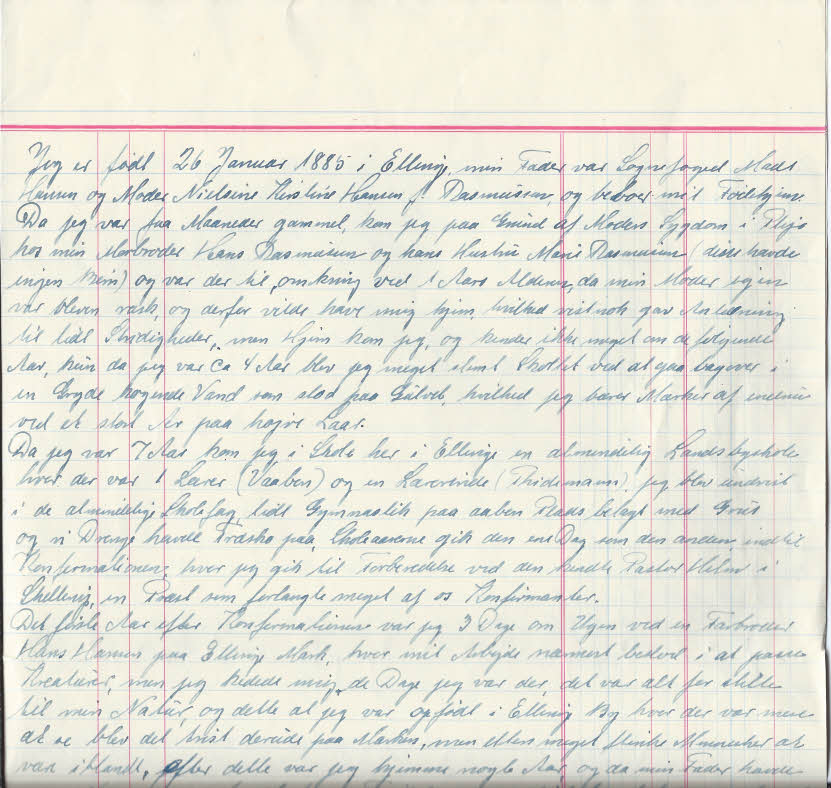 Jeg er født 26 Januar 1885 i Ellinge, min Fader var Sognefoged Mads
Hansen og Moder Nielsine Kirstine Hansen f. Rasmussen, og beboer mit Fødehjem.
Da jeg var faa Maaneder gammel, kom jeg paa Grund af Moders Sygdom i Pleje
hos min Morbroder Hans Rasmussen og hans Hustru Marie Rasmussen (disse havde
ingen Børn) og var der til omkring ved 1 Aars Alderen, da min Moder igen
var bleven rask, og derfor vilde have mig hjem, hvilket vistnok gav Anledning
til lidt Stridigheder, men Hjem kom jeg, og kender ikke meget om de følgende
Aar, kun da jeg var Ca 4 Aar blev jeg meget slemt Skoldet ved at gaa bagover i
en Gryde kogende Vand som stod paa Gulvet, hvilket jeg bærer Mærker af endnu
ved et stort Ar paa højre Laar.
Da jeg var 7 Aar kom jeg i Skole her i Ellinge en almindelig Landsbyskole
hvor der var 1 Lærer (Vaaben) og en Lærerinde (Thidemann) jeg blev undervist
i de almindelige Skolefag, lidt Gymnastik paa aaben Plads belagt med Grus
og vi Drenge havde Træsko paa, Skoleaarene gik den ene Dag som den anden indtil
Konfirmationen, hvor jeg gik til Forberedelse ved den kendte Pastor i
Skellerup, en Præst som forlangte meget af os Konfirmanter.
Det første Aar efter Konfirmationen var jeg 3 Dage om Ugen ved en Farbroder
Hans Hansen paa Ellinge Mark, hvor mit Arbejde nærmest bestod i at passe
Kreaturer, men jeg kedede mig de Dage jeg var der, det var alt for stille
til min Natur, og dette at jeg var opfødt i Ellinge By hvor der var mere
at se blev det trist derude paa Marken, men ellers meget flinke Mennesker at
være iblandt, efter dette var jeg hjemme nogle Aar, og da min Fader havde